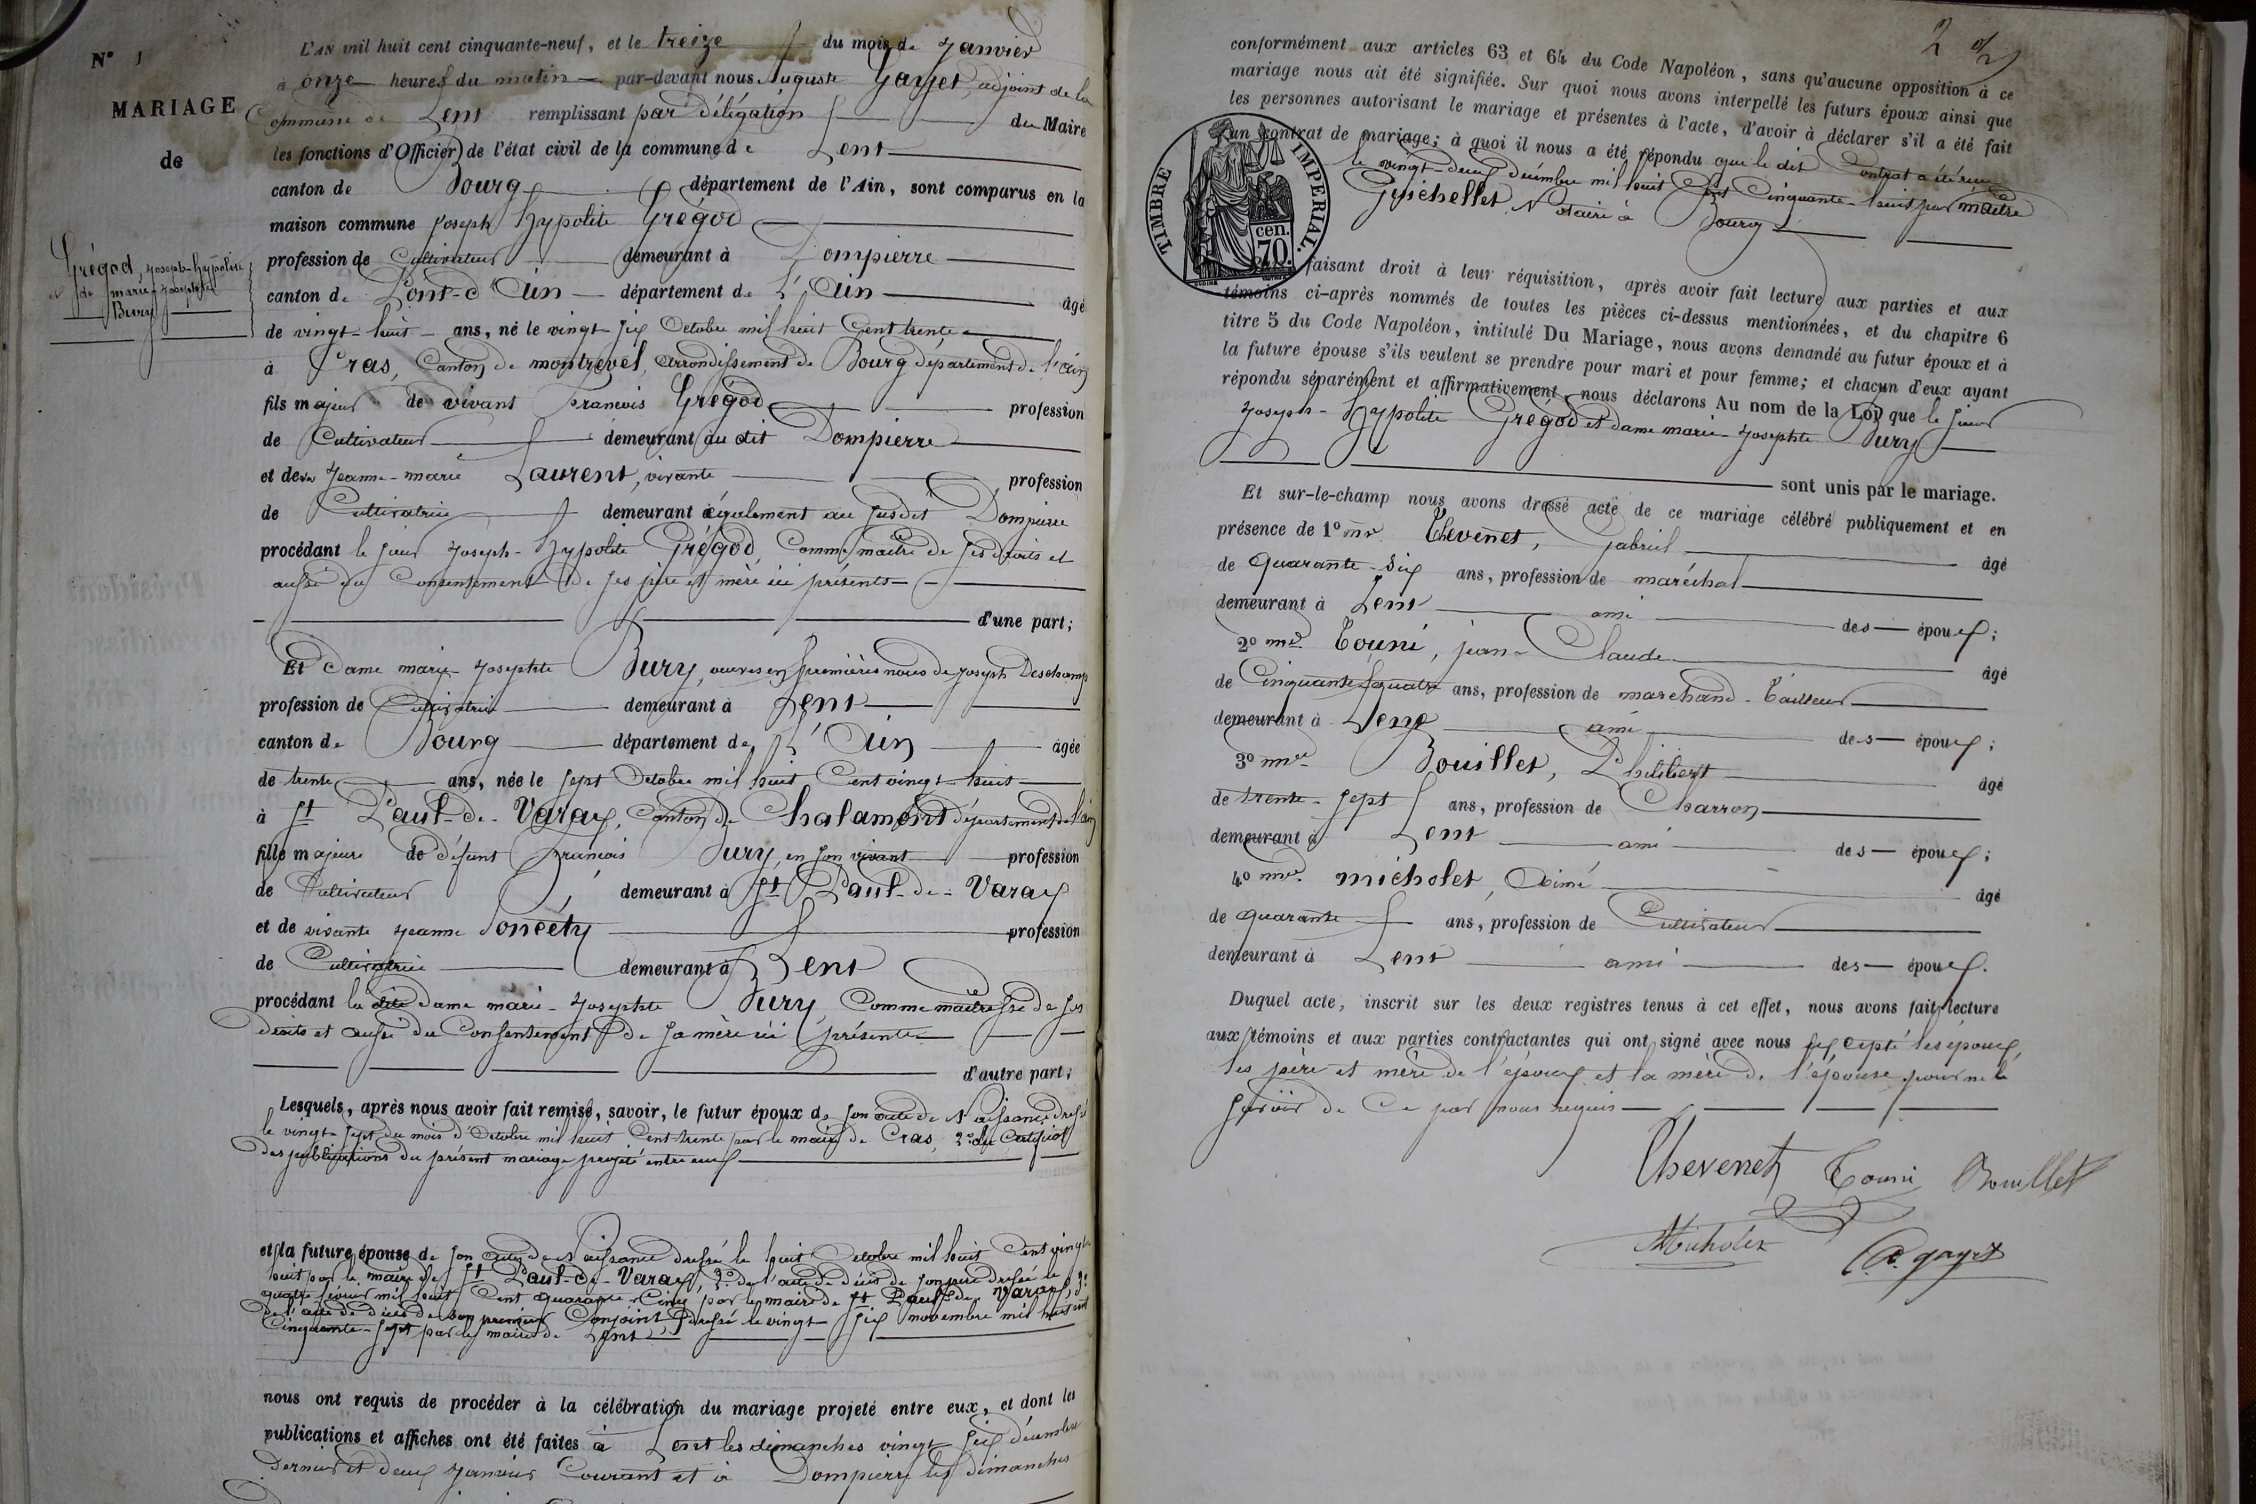 N° 1
MARIAGE
de
Grégod, Joseph-hypolite
et de marie-josephte
Bury
L'AN mil huit cent cinquante-neuf, et le treize du mois de janvier
à onze heures du matin par-devant nous Auguste Gayet, adjoint de la
commune de Lent remplissant par délégation du Maire
les fonctions d'Officier de l'état civil de la commune de Lent
canton de Bourg département de l'Ain, sont comparus en la
maison commune joseph hypolite Grégod
profession de Cultivateur demeurant à Dompierre
canton de Pont-d'Ain département de L'Ain âgé
de vingt-huit ans, né le vingt-six Octobre mil huit Cent trente
à Cras, Canton de montrevel, arrondissement de Bourg département de l'ain
fils majeur de vivant francois Grégod profession
de Cultivateur demeurant au dit Dompierre
et de Jeanne-marie Laurent, vivante profession
de Cultivatrice demeurant également au susdit Dompierre
procédant le sieur Joseph-hypolite Grégod, Comme maitre de ses droits et
aussi du Consentement de ses père et mère ici présents
d'une part;
Et dame marie-josephte Bury, veuve en premières noces de joseph Deschamp
profession de Cultivatrice demeurant à Lent
canton de Bourg département de L'Ain âgée
de trente ans, née le sept Octobre mil huit Cent vingt-huit
à St Paul-de-Varax, Canton de Chalamont département de l'ain
fille majeure de défunt francois Bury, en son vivant profession
de Cultivateur demeurant à St Paul-de-Varax
et de vivante jeanne Poncéty profession
de Cultivatrice demeurant à Lent
procédant la dite dame marie-josephte Bury, Comme maitresse de ses
droits et aussi du Consentement de sa mère ici présente
d'autre part;
Lesquels, après nous avoir fait remise, savoir, le futur époux de son acte de Naissance dressé
le vingt-sept du mois d'Octobre mil huit Cent trente par le maire de Cras, 2° du Certificat
des publications du présent mariage projeté entre eux
et la future épouse de son acte de Naissance dressé le huit Octobre mil huit Cent vingt
huit par le maire de St Paul-de-Varax, 2° de l'acte de décès de son père dressé le
quatre février mil huit Cent quarante-Cinq par le maire de St Paul-de-Varax, 3°
de l'acte de décès de son premier Conjoint dressé le vingt-six novembre mil huit cent
Cinquante-sept par le maire de Lent
nous ont requis de procéder à la célébration du mariage projeté entre eux, et dont les
publications et affiches ont été faites à Lent les dimanches vingt-six décembre
dernier et deux janvier Courant et à Dompierre les dimanches
2
conformément aux articles 63 et 64 du Code Napoléon, sans qu'aucune opposition à ce
mariage nous ait été signifiée. Sur quoi nous avons interpellé les futurs époux ainsi que
les personnes autorisant le mariage et présentes à l'acte, d'avoir à déclarer s'il a été fait
un contrat de mariage; à quoi il nous a été répondu que le dit Contrat a été reçu
le vingt-deux décembre mil huit Cent Cinquante-huit par maitre
Notaire à Bourg
TIMBRE IMPERIAL.
70 cen.
faisant droit à leur réquisition, après avoir fait lecture aux parties et aux
témoins ci-après nommés de toutes les pièces ci-dessus mentionnées, et du chapitre 6
titre 5 du Code Napoléon, intitulé Du Mariage, nous avons demandé au futur époux et à
la future épouse s'ils veulent se prendre pour mari et pour femme; et chacun d'eux ayant
répondu séparément et affirmativement, nous déclarons Au nom de la Loi que le sieur
joseph-hypolite Grégod et dame marie-josephte Bury
sont unis par le mariage.
Et sur-le-champ nous avons dressé acte de ce mariage célébré publiquement et en
présence de 1° mr. Thevenet, Gabriel âgé
de quarante-six ans, profession de maréchal
demeurant à Lent ami des époux;
2° mr. Touni, jean-Claude âgé
de Cinquante-quatre ans, profession de marchand-tailleur
demeurant à Lent ami des époux;
3° mr. Bouillet, Philibert âgé
de trente-sept ans, profession de Charron
demeurant à Lent ami des époux;
4° mr. micholet, Aimé âgé
de quarante ans, profession de Cultivateur
demeurant à Lent ami des époux.
Duquel acte, inscrit sur les deux registres tenus à cet effet, nous avons fait lecture
aux témoins et aux parties contractantes qui ont signé avec nous excepté les époux,
les père et mère de l'époux et la mère de l'épouse pour ne le
savoir de Ce par nous requis
Thevenet Touni Bouillet
Micholet A. gayet